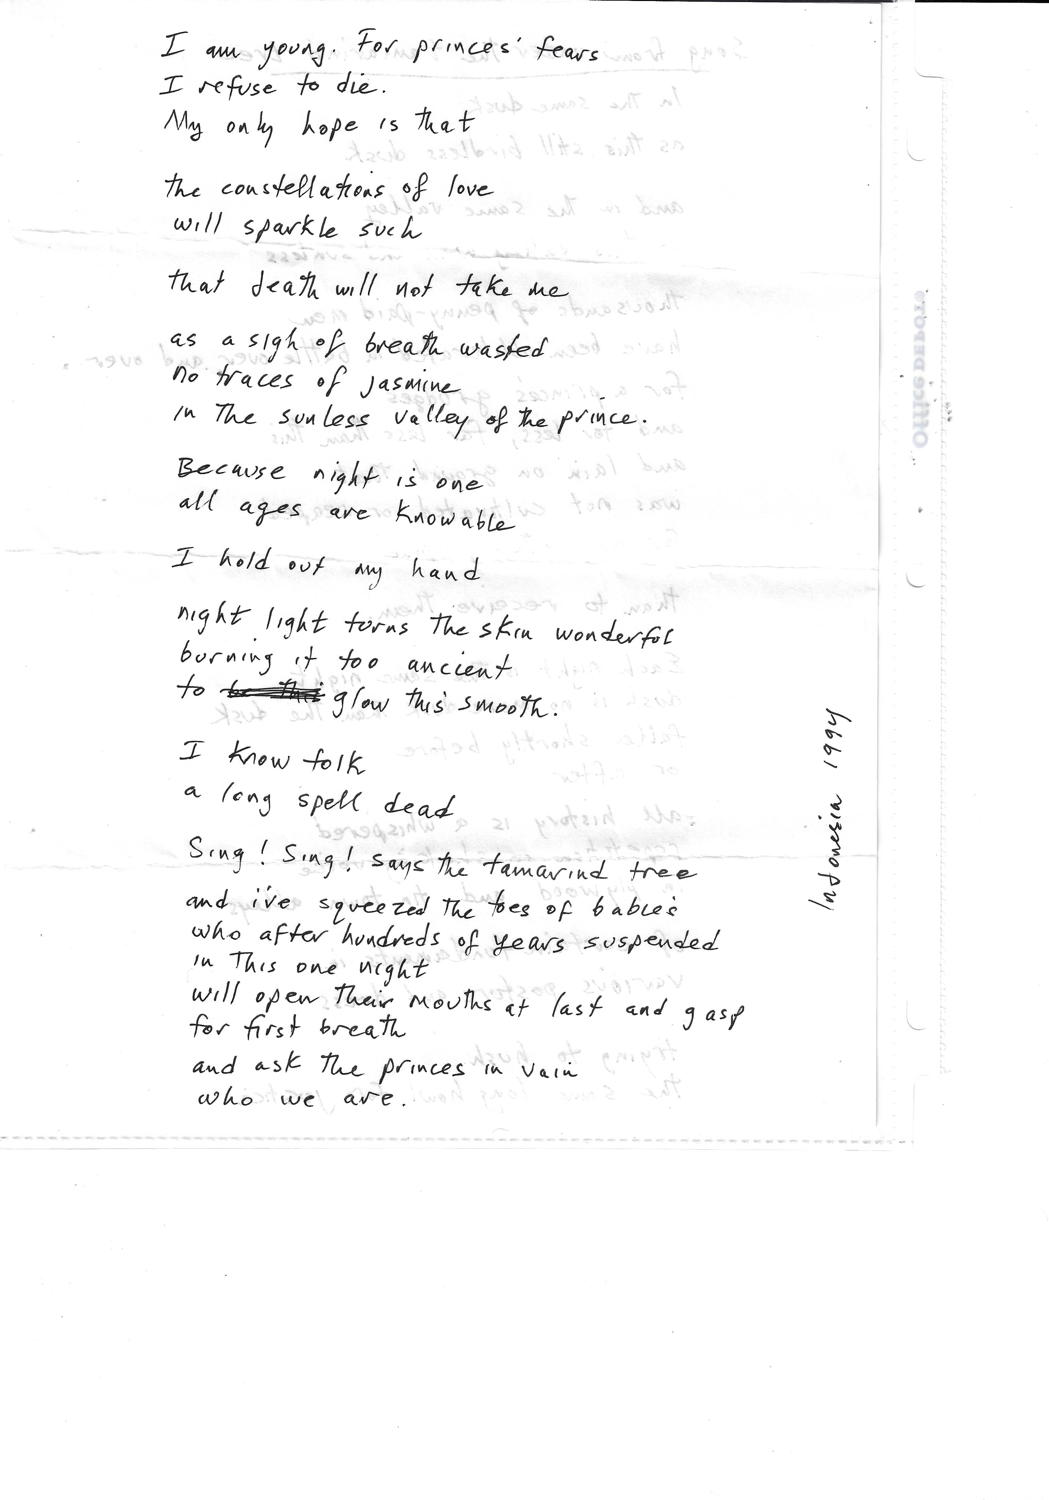 I am young. For princes' fears
I refuse to die.
My only hope is that
the constellations of love
will sparkle such
that death will not take me
as a sigh of breath wasted
no traces of jasmine
in the sunless valley of the prince.
Because night is one
all ages are knowable
I hold out my hand
night light turns the skin wonderful
burning it too ancient
to glow this smooth.
I know folk
a long spell dead
Sing! Sing! says the tamarind tree
and i've squeezed the toes of babies
who after hundreds of years suspended
in this one night
will open their mouths at last and gasp
for first breath
and ask the princes in vain
who we are.
Indonesia 1994